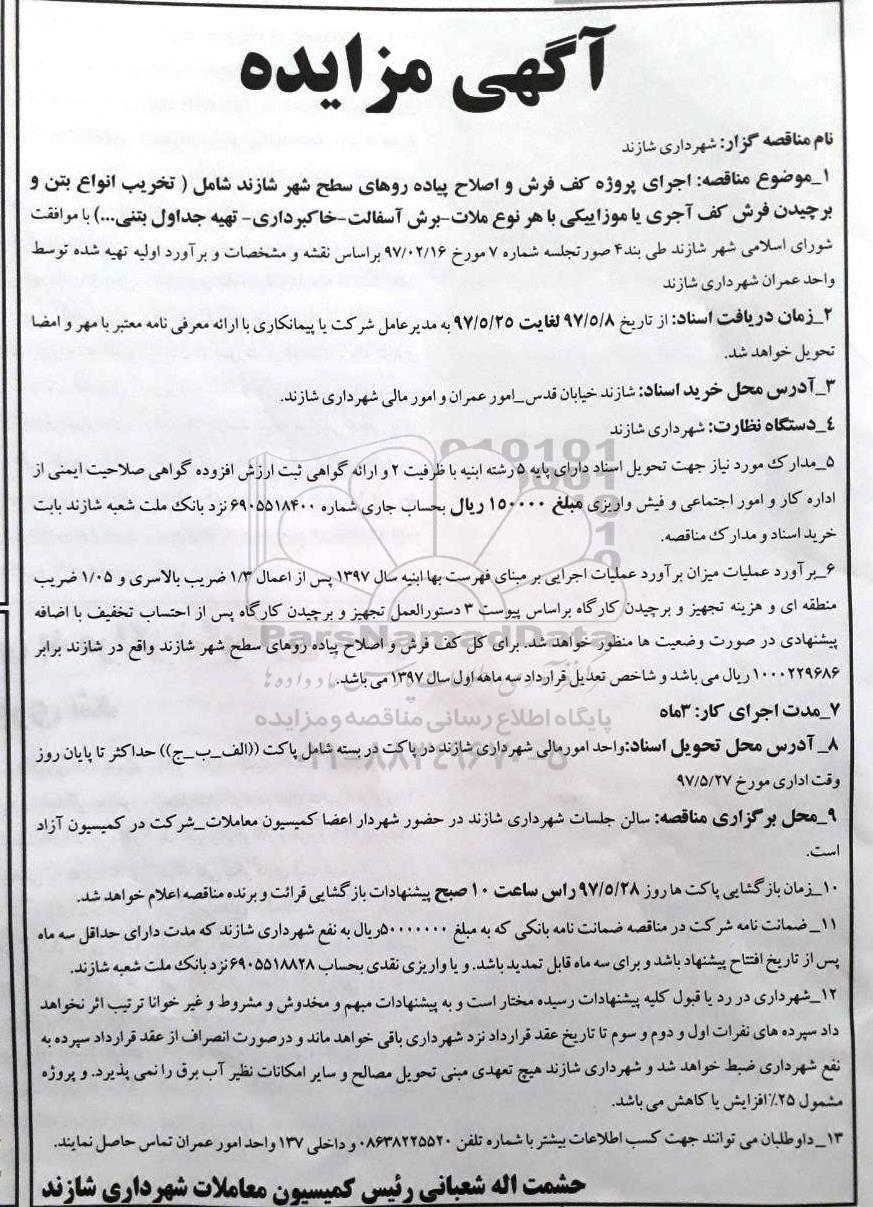 آگهی مزایده
نام مناقصه گزار: شهرداری شازند
۱_موضوع مناقصه: اجرای پروژه کف فرش و اصلاح پیاده روهای سطح شهر شازند شامل ( تخریب انواع بتن و
برچیدن فرش کف آجری یا موزاییکی با هر نوع ملات-برش آسفالت-خاکبرداری- تهیه جداول بتنی...) با موافقت
شورای اسلامی شهر شازند طی بند۴ صورتجلسه شماره ۷ مورخ ۹۷/۰۲/۱۶ براساس نقشه و مشخصات و برآورد اولیه تهیه شده توسط
واحد عمران شهرداری شازند
۲_زمان دریافت اسناد: از تاریخ ۹۷/۵/۸ لغایت ۹۷/۵/۲۵ به مدیرعامل شرکت یا پیمانکاری با ارائه معرفی نامه معتبر با مهر و امضا
تحویل خواهد شد.
۳_آدرس محل خرید اسناد: شازند خیابان قدس_امور عمران و امور مالی شهرداری شازند.
۴_دستگاه نظارت: شهرداری شازند
۵_مدارک مورد نیاز جهت تحویل اسناد دارای پایه ۵ رشته ابنیه با ظرفیت ۲ و ارائه گواهی ثبت ارزش افزوده گواهی صلاحیت ایمنی از
اداره کار و امور اجتماعی و فیش واریزی مبلغ ۱۵۰۰۰۰ ریال بحساب جاری شماره ۶۹۰۵۵۱۸۴۰۰ نزد بانک ملت شعبه شازند بابت
خرید اسناد و مدارک مناقصه.
۶_برآورد عملیات میزان برآورد عملیات اجرایی بر مبنای فهرست بها ابنیه سال ۱۳۹۷ پس از اعمال ۱/۳ ضریب بالاسری و ۱/۰۵ ضریب
منطقه ای و هزینه تجهیز و برچیدن کارگاه براساس پیوست ۳ دستورالعمل تجهیز و برچیدن کارگاه پس از احتساب تخفیف با اضافه
پیشنهادی در صورت وضعیت ها منظور خواهد شد. برای کل کف فرش و اصلاح پیاده روهای سطح شهر شازند واقع در شازند برابر
۱۰۰۰۲۲۹۶۸۶ ریال می باشد و شاخص تعدیل قرارداد سه ماهه اول سال ۱۳۹۷ می باشد.
۷_مدت اجرای کار: ۳ماه
۸_ آدرس محل تحویل اسناد:واحد امورمالی شهرداری شازند در پاکت در بسته شامل پاکت ((الف_ب_ج)) حداکثر تا پایان روز
وقت اداری مورخ ۹۷/۵/۲۷
۹_محل برگزاری مناقصه: سالن جلسات شهرداری شازند در حضور شهردار اعضا کمیسیون معاملات_شرکت در کمیسیون آزاد
است.
۱۰_زمان بازگشایی پاکت ها روز ۹۷/۵/۲۸ راس ساعت ۱۰ صبح پیشنهادات بازگشایی قرائت و برنده مناقصه اعلام خواهد شد.
۱۱_ ضمانت نامه شرکت در مناقصه ضمانت نامه بانکی که به مبلغ ۵۰۰۰۰۰۰۰ریال به نفع شهرداری شازند که مدت دارای حداقل سه ماه
پس از تاریخ افتتاح پیشنهاد باشد و برای سه ماه قابل تمدید باشد. و یا واریزی نقدی بحساب ۶۹۰۵۵۱۸۸۲۸ نزد بانک ملت شعبه شازند.
۱۲_شهرداری در رد یا قبول کلیه پیشنهادات رسیده مختار است و به پیشنهادات مبهم و مخدوش و مشروط و غیر خوانا ترتیب اثر نخواهد
داد سپرده های نفرات اول و دوم و سوم تا تاریخ عقد قرارداد نزد شهرداری باقی خواهد ماند و درصورت انصراف از عقد قرارداد سپرده به
نفع شهرداری ضبط خواهد شد و شهرداری شازند هیچ تعهدی مبنی تحویل مصالح و سایر امکانات نظیر آب برق را نمی پذیرد. و پروژه
مشمول ۲۵٪ افزایش یا کاهش می باشد.
۱۳_داوطلبان می توانند جهت کسب اطلاعات بیشتر با شماره تلفن ۰۸۶۳۸۲۲۵۵۲۰ و داخلی ۱۳۷ واحد امور عمران تماس حاصل نمایند.
حشمت اله شعبانی رئیس کمیسیون معاملات شهرداری شازند
ParsNamadData
پایگاه اطلاع رسانی مناقصه و مزایده